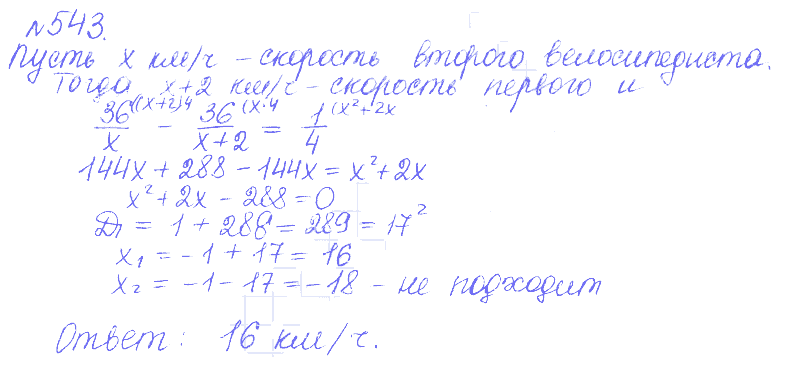 №543.
Пусть x км/ч – скорость второго велосипедиста.
Тогда x+2 км/ч – скорость первого и
36/x ((x+2)4 – 36/(x+2) (x·4 = 1/4 (x²+2x
144x + 288 – 144x = x² + 2x
x² + 2x – 288 = 0
D₁ = 1 + 288 = 289 = 17²
x₁ = –1 + 17 = 16
x₂ = –1 – 17 = –18 – не подходит
Ответ: 16 км/ч.